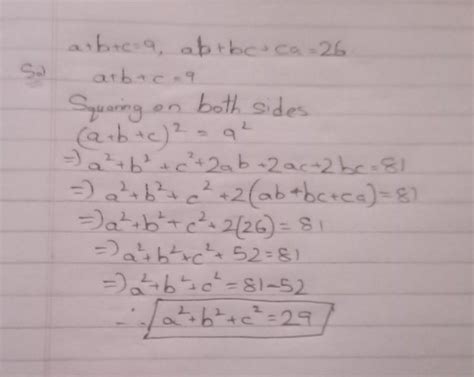 a+b+c=9, ab+bc+ca=26
Sol a+b+c=9
Squaring on both sides
(a+b+c)² = 9²
⇒ a²+b²+c²+2ab+2ac+2bc=81
⇒ a²+b²+c²+2(ab+bc+ca)=81
⇒ a²+b²+c²+2(26)=81
⇒ a²+b²+c²+52=81
⇒ a²+b²+c²=81-52
∴ a²+b²+c²=29